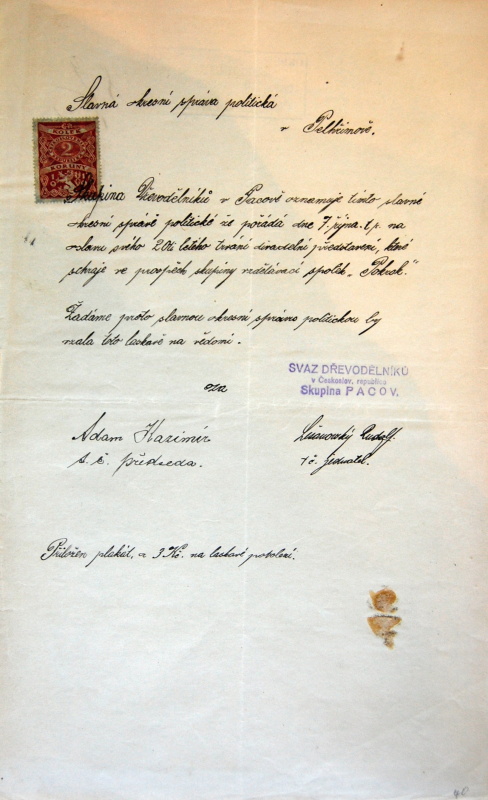 Slavná okresní správa politická
v Pelhřimově.
KOLEK
2
KORUNY
Skupina Dřevodělníků v Pacově oznamuje tímto slavné
okresní správě politické že pořádá dne 7. října t. p. na
oslavu svého 20ti letého trvání divadelní představení, které
sehraje ve prospěch skupiny vzdělávací spolek „Pokrok.“
Žádáme proto slavnou okresní správu politickou by
vzala toto laskavě na vědomí.
SVAZ DŘEVODĚLNÍKŮ
v Českoslov. republice
Skupina PACOV.
za
Adam Kazimír
t. č. předseda.
Rudolf.
t č. jednatel.
Přiložen plakát, a 3 Kč. na laskavé povolení.
40